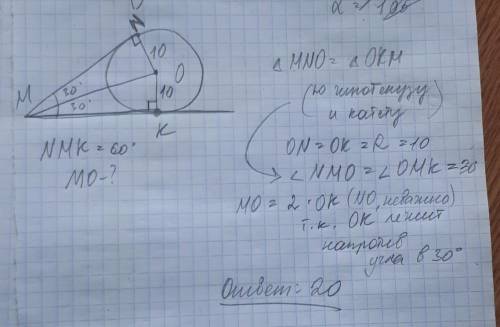 N
10
M
30°
O
30°
10
K
NMK = 60°
MO - ?
△ MNO = △ OKM
(по гипотенузе
и катету)
ON = OK = R = 10
∠ NMO = ∠ OMK = 30
MO = 2 · OK (NO, неважно)
т.к. OK лежит
напротив
угла в 30°
Ответ: 20